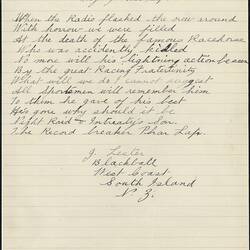 When the Radio flashed the now around
With horrow we were filled
At the death of the famous Racehorse
Who was accidently killed
No more will his lightning action be seen
By the great Racing Fraternity
What will we do I cannot suggest
All Sportsmen will remember him
To them he gave of his best
He's gone why should it be
Night Raid & Entreaty's Son
The Record breaker Phar Lap.
J. Lester
Blackball
West Coast
South Island
N Z.